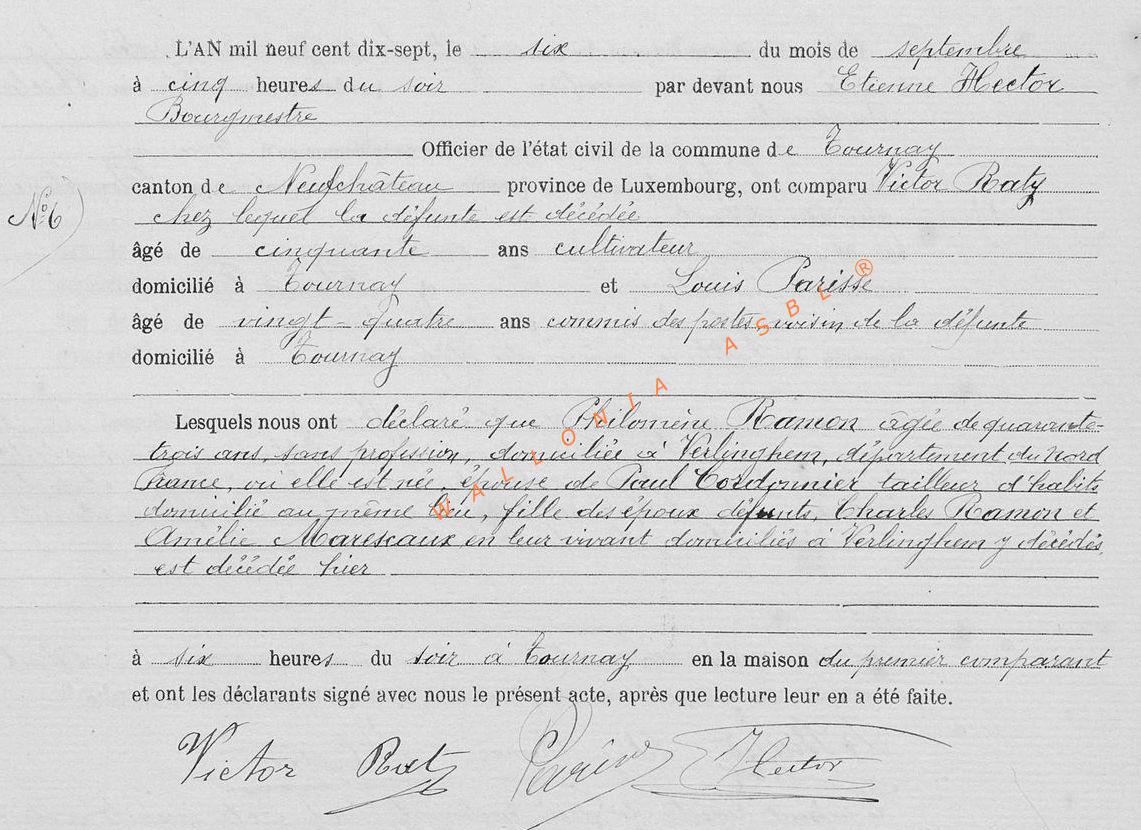 L'AN mil neuf cent dix-sept, le six du mois de septembre
à cinq heures du soir par devant nous Etienne Hector
Bourgmestre
Officier de l'état civil de la commune de Tournay
canton de Neufchâteau province de Luxembourg, ont comparu Victor Raty
N° 6
chez lequel la défunte est décédée
âgé de cinquante ans cultivateur
domicilié à Tournay et Louis Parisse
âgé de vingt-quatre ans commis des postes, voisin de la défunte
domicilié à Tournay
Lesquels nous ont déclaré que Philomène Ramon âgée de quarante-
trois ans, sans profession, domiciliée à Verlinghem, département du Nord
France, où elle est née, épouse de Paul Cordonnier tailleur d'habits
domicilié au même lieu, fille des époux défunts, Charles Ramon et
Amélie Marescaux, en leur vivant domiciliés à Verlinghem y décédés,
est décédée hier
à six heures du soir à Tournay en la maison du premier comparant
et ont les déclarants signé avec nous le présent acte, après que lecture leur en a été faite.
Victor Raty Parisse Hector
WALLONIA ASBL ®